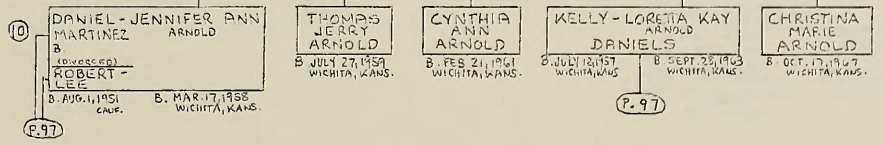 10
DANIEL - JENNIFER ANN
MARTINEZ ARNOLD
B.
(DIVORCED)
ROBERT -
LEE
B. AUG. 1, 1951 B. MAR. 17, 1958
CALIF. WICHITA, KANS.
P. 97
THOMAS
JERRY
ARNOLD
B JULY 27, 1959
WICHITA, KANS.
CYNTHIA
ANN
ARNOLD
B. FEB 21, 1961
WICHITA, KANS.
KELLY - LORETTA KAY
ARNOLD
DANIELS
B. JULY 12, 1957 B SEPT. 28, 1963
WICHITA, KANS WICHITA, KANS.
P. 97
CHRISTINA
MARIE
ARNOLD
B. OCT. 17, 1967
WICHITA, KANS.